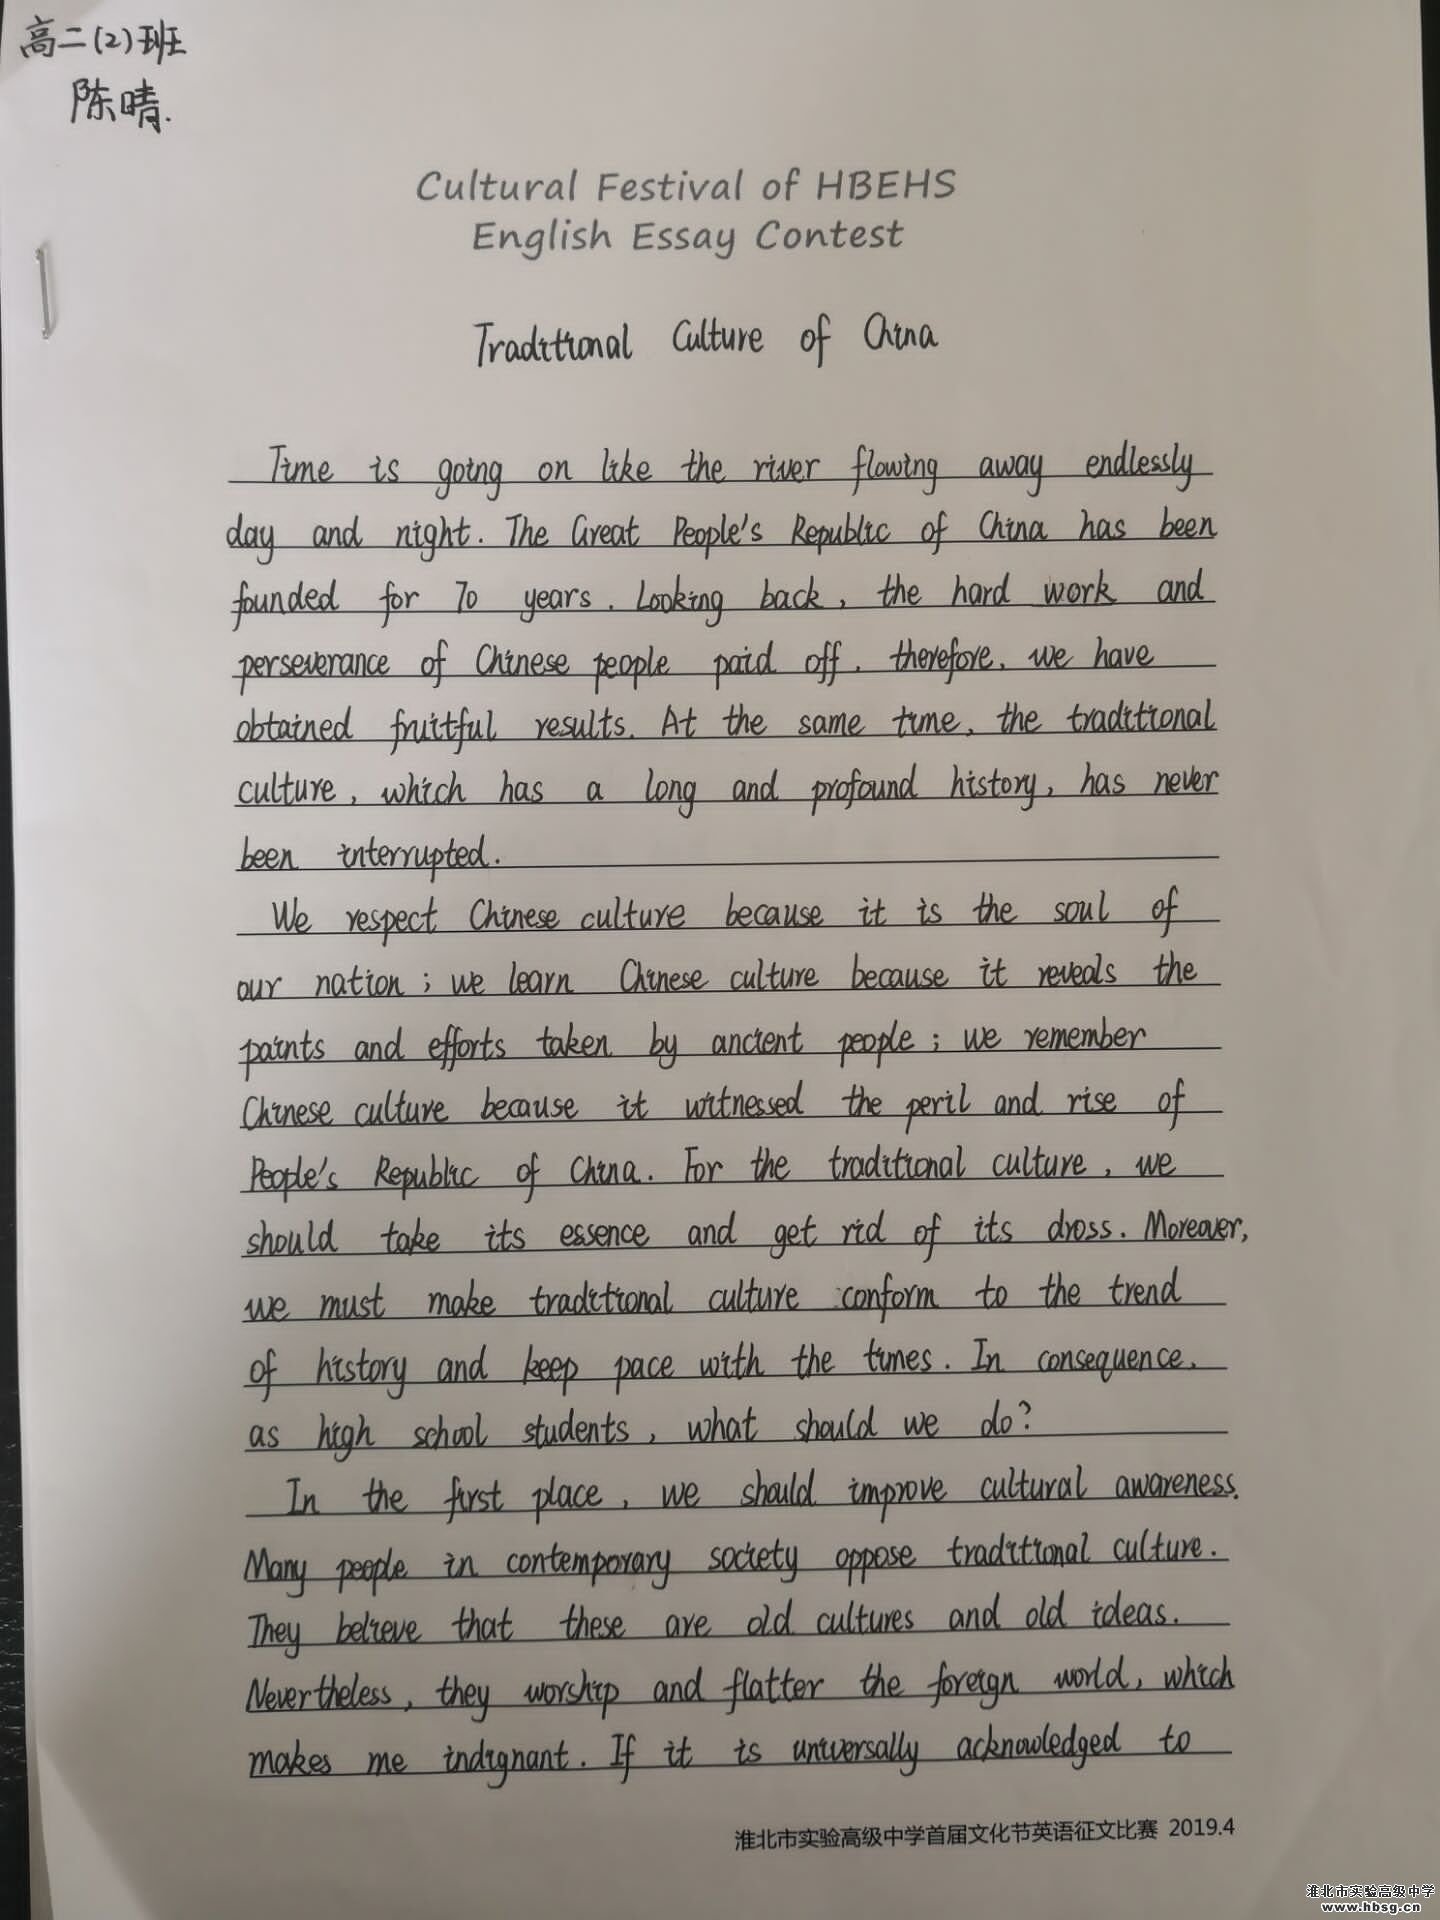 高二(2)班
陈晴.
Cultural Festival of HBEHS
English Essay Contest
Traditional Culture of China
Time is going on like the river flowing away endlessly
day and night. The Great People's Republic of China has been
founded for 70 years. Looking back, the hard work and
perseverance of Chinese people paid off, therefore, we have
obtained fruitful results. At the same time, the traditional
culture, which has a long and profound history, has never
been interrupted.
We respect Chinese culture because it is the soul of
our nation; we learn Chinese culture because it reveals the
paints and efforts taken by ancient people; we remember
Chinese culture because it witnessed the peril and rise of
People's Republic of China. For the traditional culture, we
should take its essence and get rid of its dross. Moreover,
we must make traditional culture conform to the trend
of history and keep pace with the times. In consequence,
as high school students, what should we do?
In the first place, we should improve cultural awareness.
Many people in contemporary society oppose traditional culture.
They believe that these are old cultures and old ideas.
Nevertheless, they worship and flatter the foreign world, which
makes me indignant. If it is universally acknowledged to
淮北市实验高级中学首届文化节英语征文比赛 2019.4
淮北市实验高级中学
www.hbsg.cn